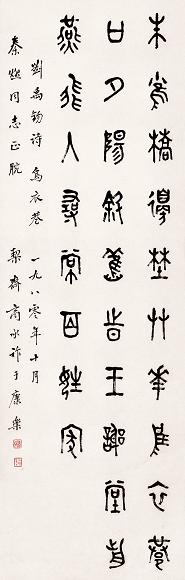 朱雀橋邊埜艸華烏衣巷
口夕陽斜舊旹王謝堂前
燕飛入尋常百姓家
劉禹錫詩 烏衣巷 一九八零年十月
秦同志正腕 契齋商承祚于康樂